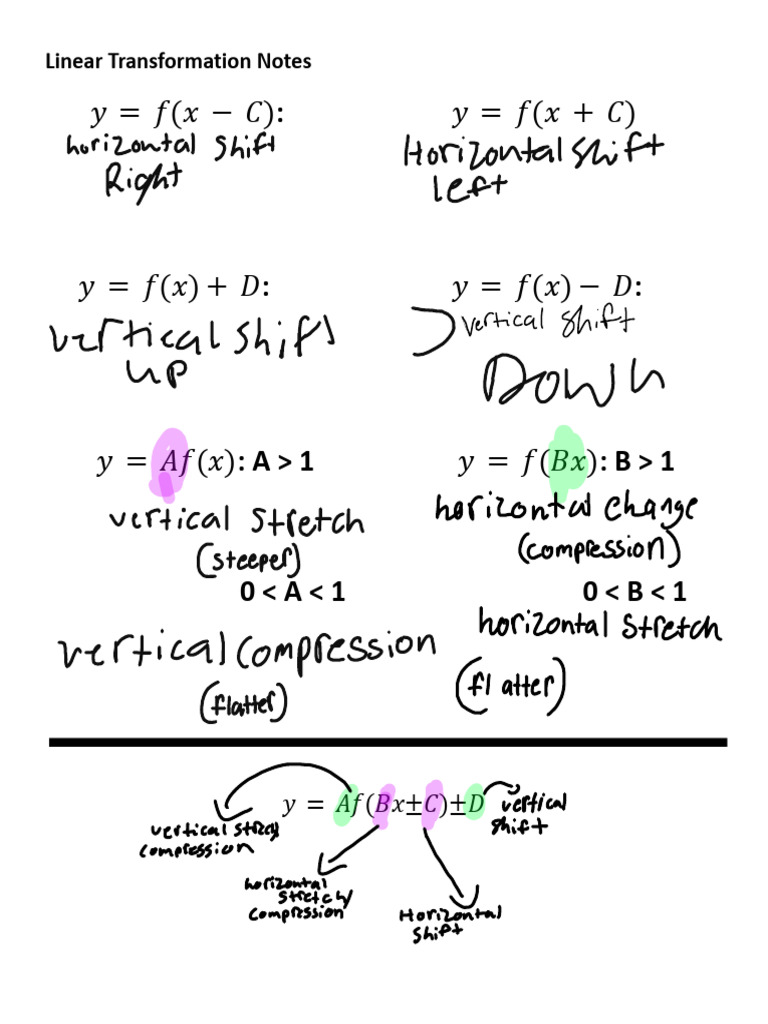 Linear Transformation Notes
y = f(x − C):
horizontal shift
Right
y = f(x + C)
Horizontal shift
left
y = f(x) + D:
vertical shift
up
y = f(x) − D:
vertical shift
Down
y = Af(x): A > 1
vertical stretch
(steeper)
0 < A < 1
vertical compression
(flatter)
y = f(Bx): B > 1
horizontal change
(compression)
0 < B < 1
horizontal stretch
(flatter)
y = Af(Bx±C)±D
vertical
shift
vertical
compression
horizontal
stretch/
compression
Horizontal
shift